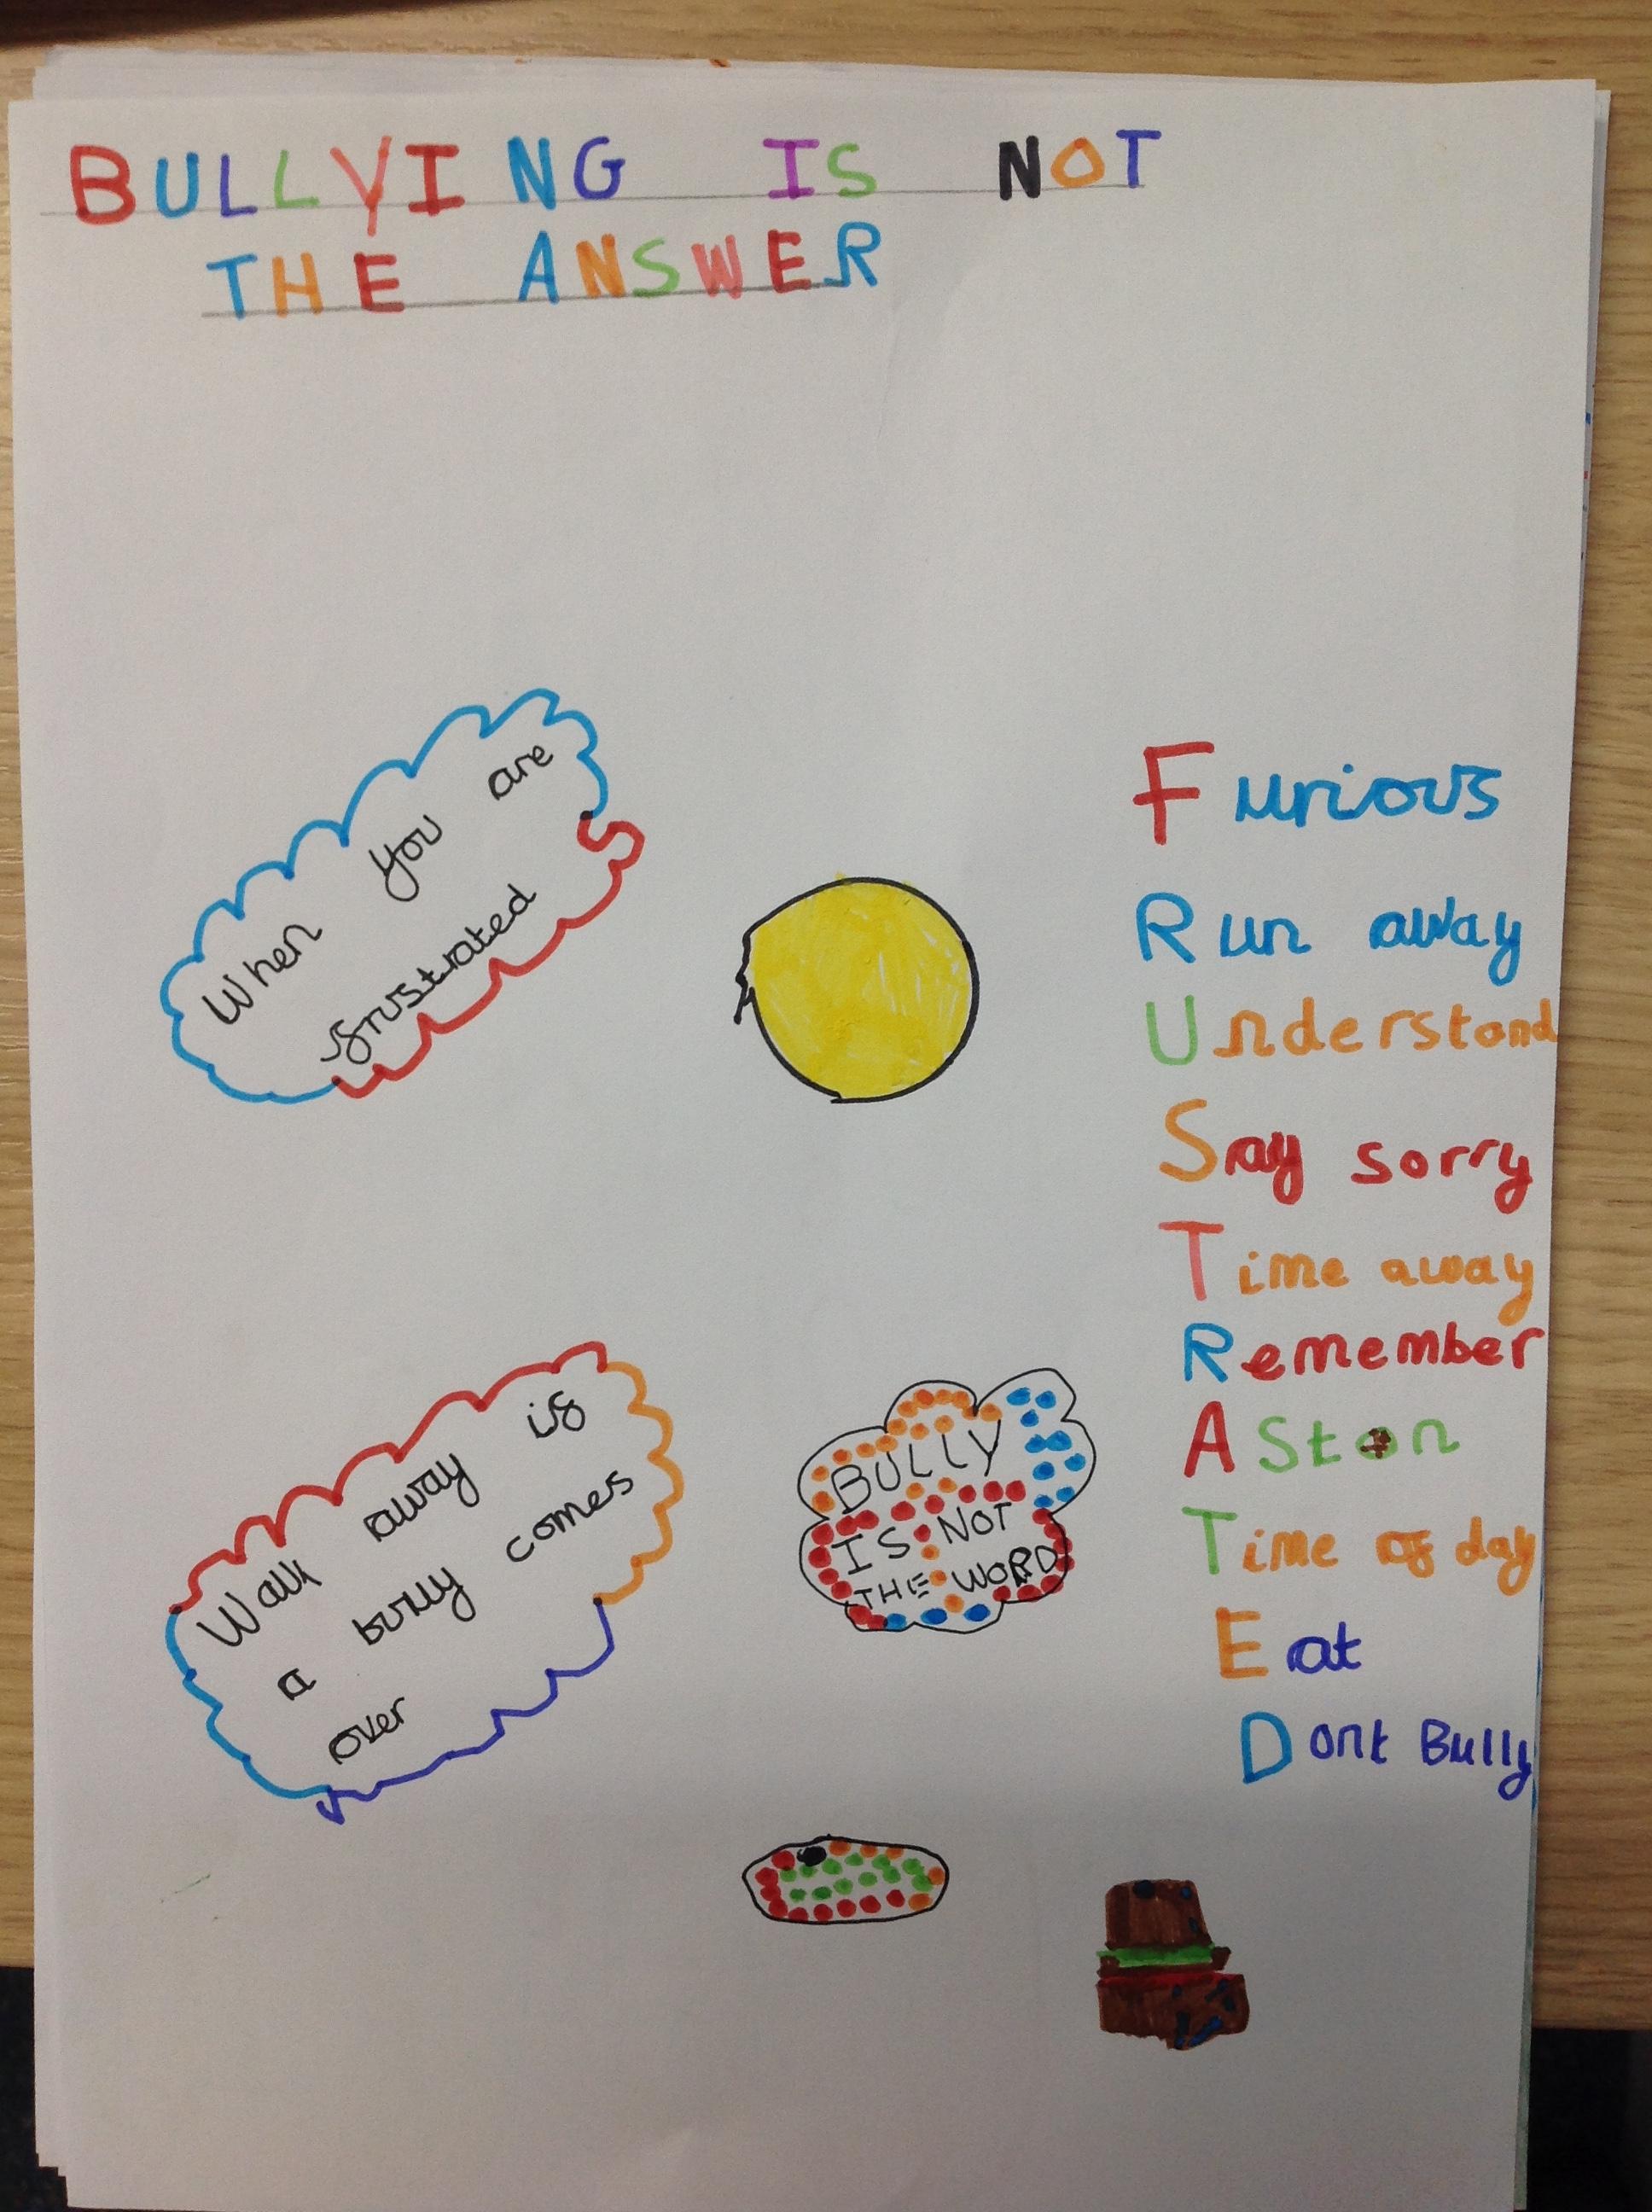 BULLYING IS NOT
THE ANSWER
When you are
frustrated
Furious
Run away
Understand
Say sorry
Time away
Remember
Aston
Time of day
Eat
Dont Bully
Walk away is
a bully comes
over
BULLY
IS NOT
THE WORD